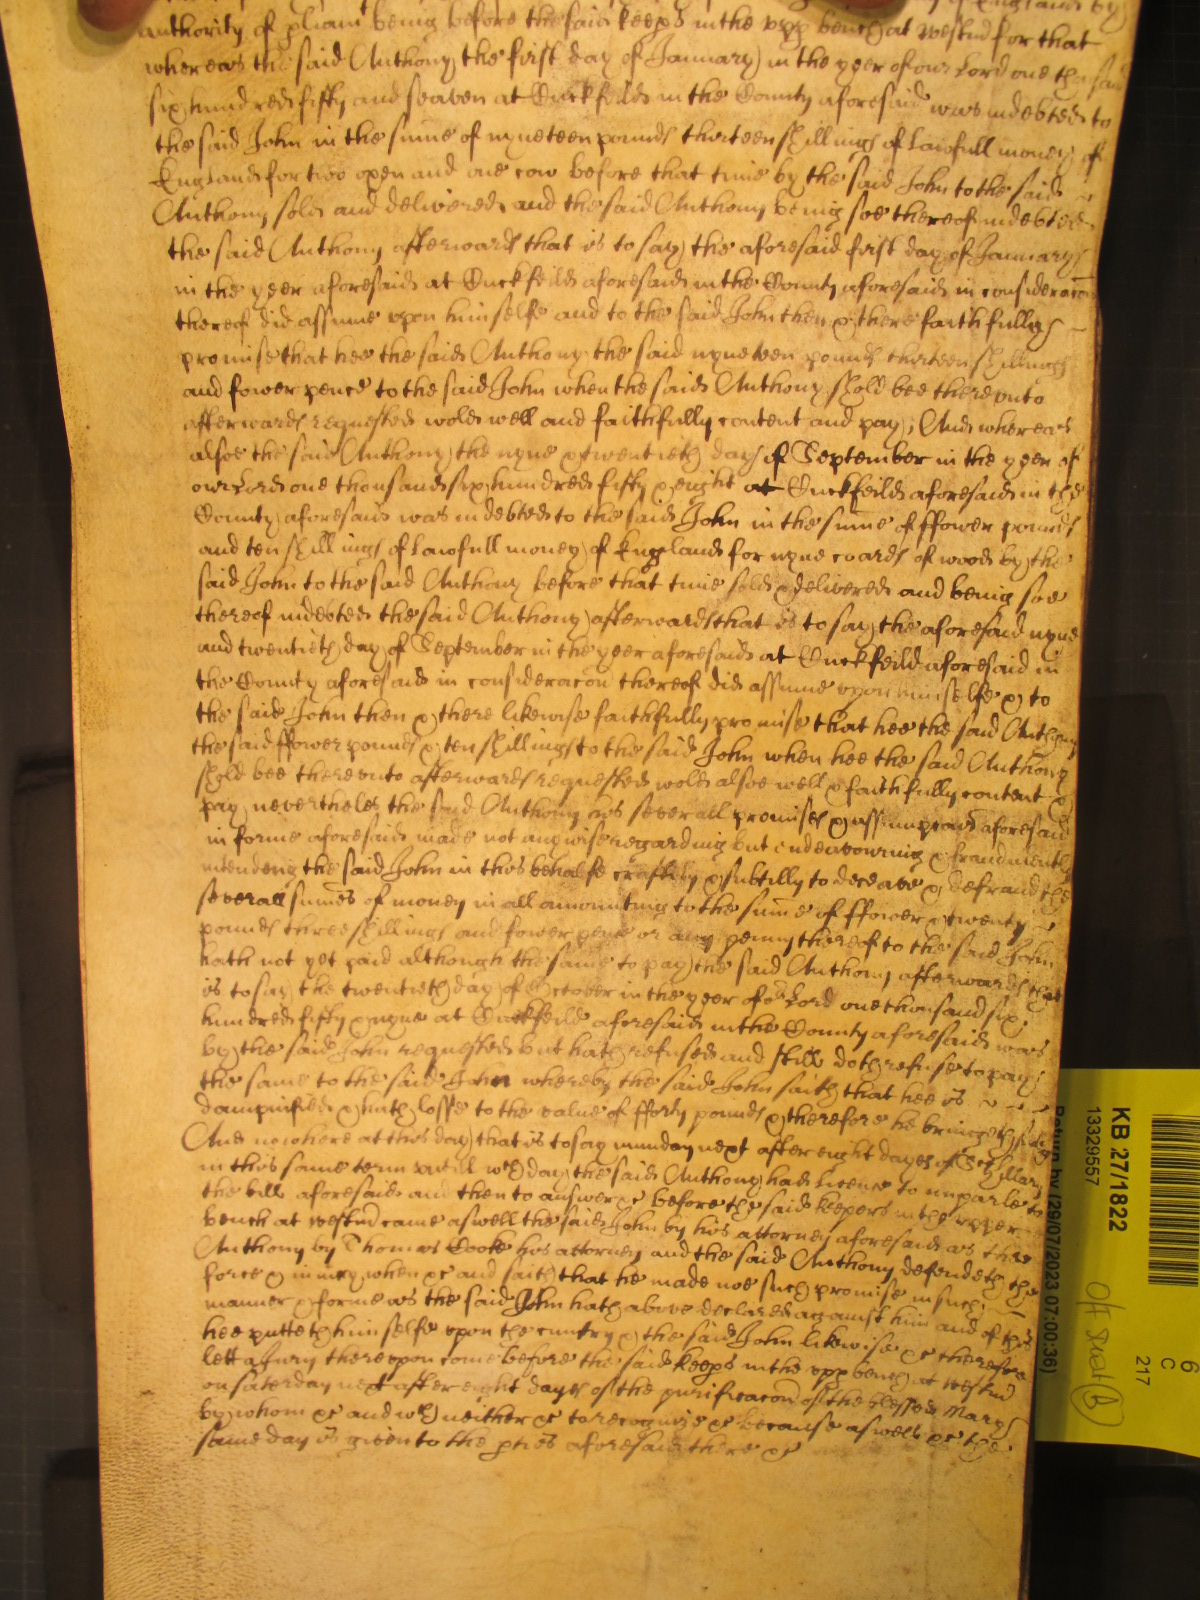 authority of pliam^t being before the said keeps in the upp bench at westmr for that
whereas the said Anthony the first day of January in the yeer of our Lord one thousand
six hundred fifty and seaven at Cuckfeild in the County aforesaid was indebted to
the said John in the sume of nyneteen pounds thirteen shillings of lawfull money of
England for two oxen and one cow before that time by the said John to the said
Anthony sold and delivered and the said Anthony being soe thereof indebted
the said Anthony afterwards that is to say the aforesaid first day of January
in the yeer aforesaid at Cuckfeild aforesaid in the County aforesaid in consideracon
thereof did assume upon himselfe and to the said John then & there faithfully
promise that hee the said Anthony the said nyneteen pounds thirteen shillings
and fower pence to the said John when the said Anthony shold bee thereunto
afterwards requested wold well and faithfully content and pay; And whereas
alsoe the said Anthony the nyne & twentieth day of September in the yeer of
our Lord one thousand six hundred fifty & eight at Cuckfeild aforesaid in the
County aforesaid was indebted to the said John in the sume of ffower pounds
and ten shillings of lawfull money of England for nyne coards of wood by the
said John to the said Anthony before that time sold & delivered and being soe
thereof indebted the said Anthony afterwards that is to say the aforesaid nyne
and twentieth day of September in the yeer aforesaid at Cuckfeild aforesaid in
the County aforesaid in consideracon thereof did assume upon himselfe & to
the said John then & there likewise faithfully promise that hee the said Anthony
the said ffower pounds & ten shillings to the said John when hee the said Anthony
shold bee thereunto afterwards requested wold alsoe well & faithfully content &
pay nevertheles the said Anthony his severall promises & assumpcons aforesaid
in forme aforesaid made not any wise regarding but endeavouring & fraudulently
intending the said John in this behalfe craftily & subtilly to deceave & defraud the
severall sumes of money in all amounting to the sume of ffower & twenty
pounds three shillings and fower pence or any penny thereof to the said John
hath not yet paid although the same to pay the said Anthony afterwards that
is to say the twentieth day of October in the yeer of o^r Lord one thousand six
hundred fifty & nyne at Cuckfeild aforesaid in the County aforesaid was
by the said John requested but hath refused and still doth refuse to pay
the same to the said John whereby the said John saith that hee is
dampnified & hath losse to the value of fforty pounds & therefore he bringeth suite &c
And now here at this day that is to say munday next after eight dayes of S^t Hillary
in this same term until w^ch day the said Anthony had licence to imparle to
the bill aforesaid and then to answer &c before the said keepers in the upper
bench at westmr came aswell the said John by his attorney aforesaid as the
Anthony by Thomas Cooke his attorney and the said Anthony defendeth the
force & iniury when &c and saith that he made noe such promise in such
manner & forme as the said John hath above declared against him and of this
hee putteth himselfe upon the cuntry & the said John likewise &c therefore
lett a Jury thereupon come before the said keeps in the upp bench at westmr
on saterday next after eight dayes of the purificacon of the blessed Mary
by whom &c and w^ch neither &c to recognize &c because aswell &c the
same day is given to the pties aforesaid there &c
KB 27/1822
13329557
Return by (29/07/2023 07:00:36)
6
C
217